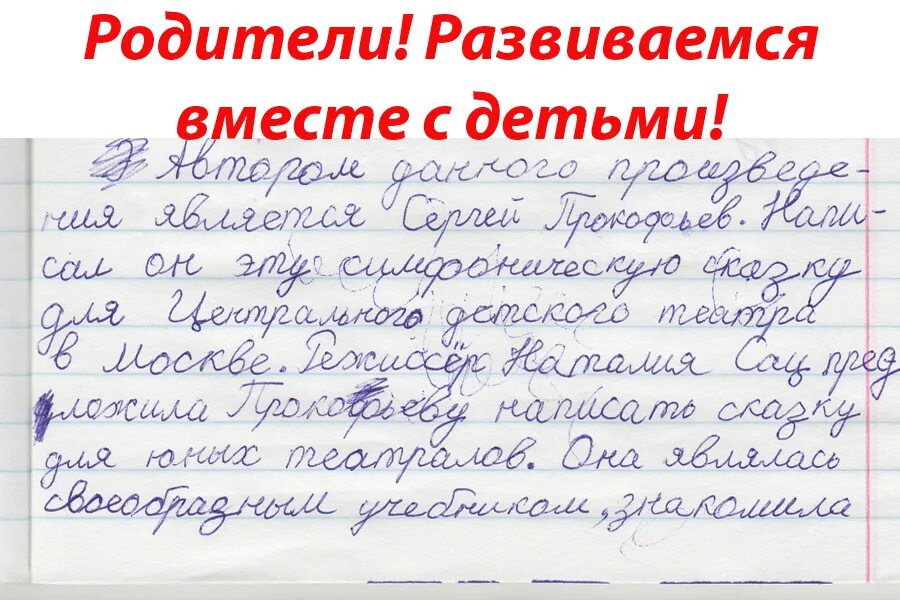 Родители! Развиваемся
вместе с детьми!
Автором данного произведе-
ния является Сергей Прокофьев. Напи-
сал он эту симфоническую сказку
для Центрального детского театра
в Москве. Режиссёр Наталия Сац пред
ложила Прокофьеву написать сказку
для юных театралов. Она являлась
своеобразным учебником, знакомила